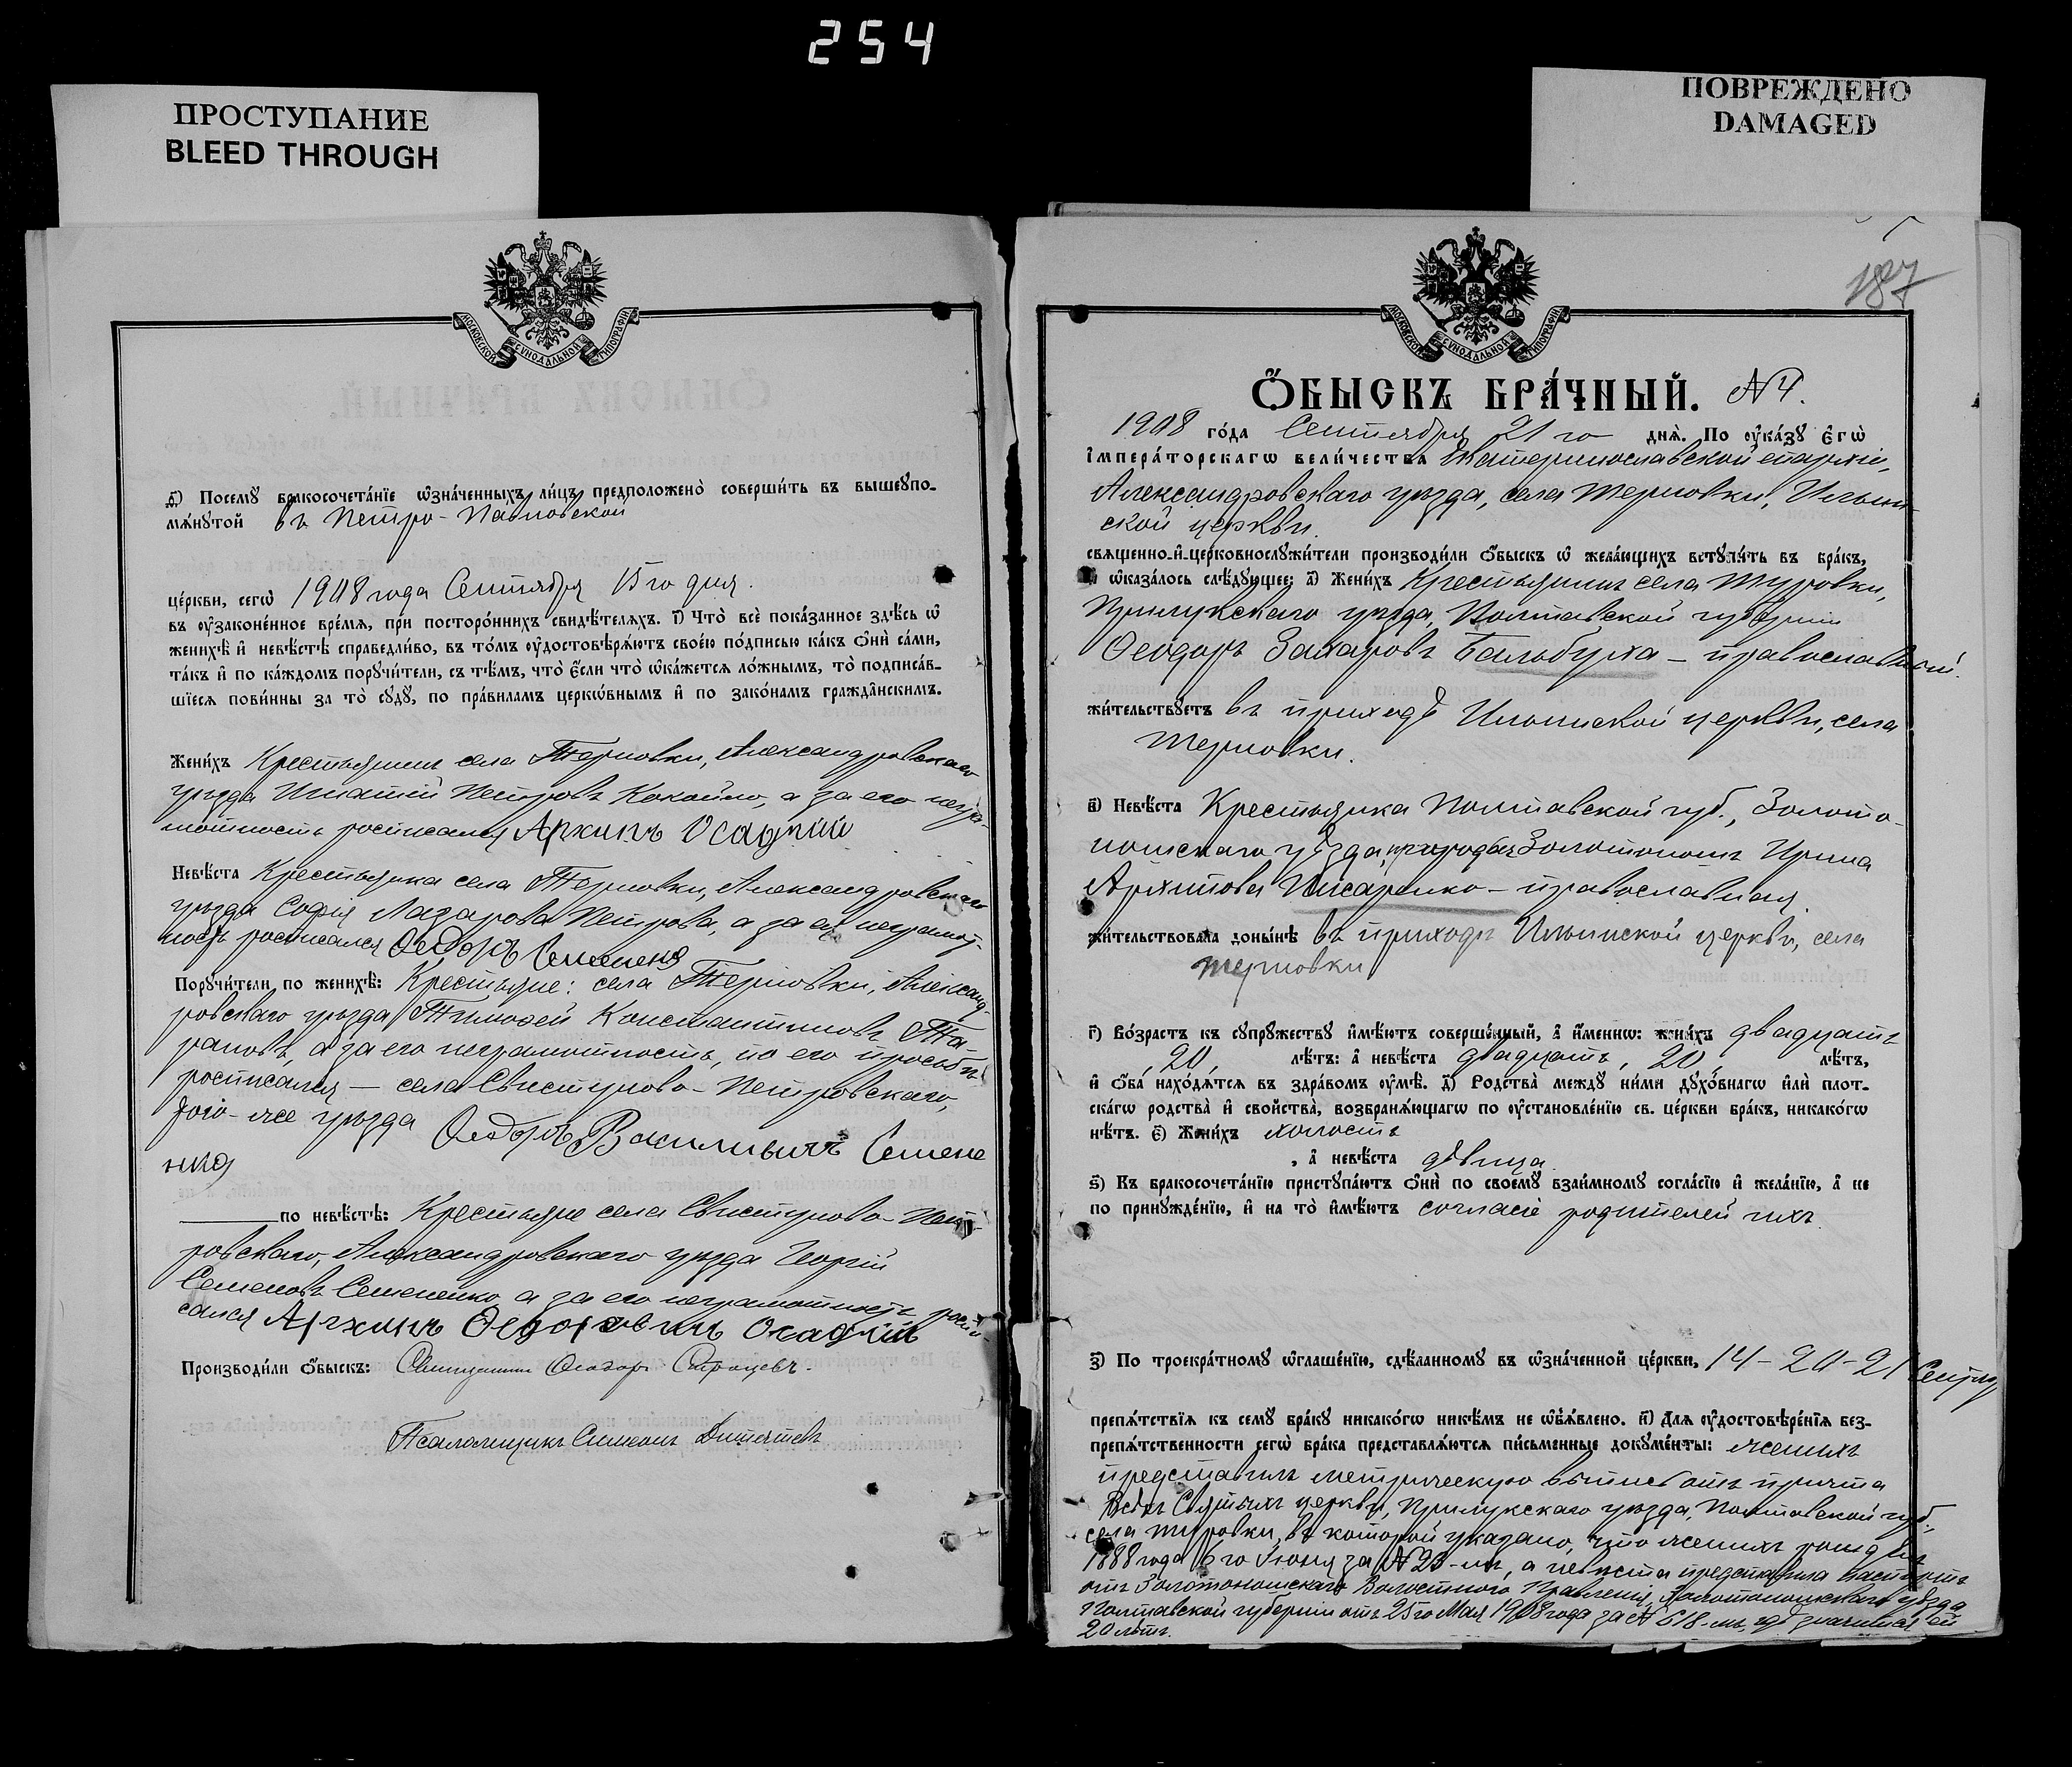 254
ПРОСТУПАНИЕ
BLEED THROUGH
ПОВРЕЖДЕНО
DAMAGED
МОСКОВСКОЙ СѴНОДАЛЬНОЙ ТИПОГРАФІИ
д҃і) Посемꙋ бракосочета́нїе ѡ҆зна́ченныхъ ли́цъ предположено̀ соверши́ть въ вышеупо-
мѧ́нꙋтой въ Петро-Павловской
це́ркви, сегѡ̀ 1908 года Сентября 15го дня.
въ ᲂу҆законе́нное вре́мѧ, при посторо́ннихъ свидѣ́телѧхъ. і҃) Что̀ всѐ пока́занное здѣ́сь ѡ҆
женихѣ̀ и҆ невѣ́стѣ справедли́во, въ то́мъ ᲂу҆достовѣрѧ́ютъ свое́ю по́дписью ка́къ ѻ҆нѝ са́ми,
та́къ и҆ по ка́ждомъ порꙋчи́тели, съ тѣ́мъ, что̀ є҆́сли что̀ ѡ҆ка́жетсѧ ло́жнымъ, то̀ подписа́в-
шїесѧ пови́нны за то̀ сꙋдꙋ̀, по пра́виламъ церкѡ́внымъ и҆ по зако́намъ гражда̑нскимъ.
Жени́хъ Крестьянинъ села Терновки, Александровскаго
уѣзда Игнатій Петровъ Кокойло, а за его негра-
мотность росписался Архипъ Осадчій
Невѣ́ста Крестьянка села Терновки, Александровскаго
уѣзда Софія Лазарова Петрова, а за ея неграмот-
ность росписался Ѳедоръ Семененко
Порꙋчи́тели по женихѣ̀: Крестьяне: села Терновки, Александ-
ровскаго уѣзда Тимоѳей Константиновъ Та-
рановъ, а за его неграмотность, по его просьбѣ
росписался — села Свистуново-Петровскаго,
того-же уѣзда Ѳедоръ Василиьичъ Семене
нко
по невѣ́стѣ: Крестьяне села Свистуново-Пет-
ровскаго, Александровскаго уѣзда Георгій
Семеновъ Семененко а за его неграмотность роспи-
сался Архипъ Ѳедоровичъ Осадчій
Производи́ли ѻ҆́быскъ: Священникъ Ѳеодоръ
Псаломщикъ Симеонъ
187
Ѻ҆́БЫСКЪ БРА́ЧНЫЙ. №4.
1908 го́да Сентября 21 го днѧ̀. По ᲂу҆ка́зꙋ є҆гѡ̀
і҆мпера́торскагѡ вели́чества Екатеринославской епархіи,
Александровскаго уѣзда, села Терновки, Ильин-
ской церкви.
свѧщенно-и҆-церковнослꙋжи́тели производи́ли ѻ҆́быскъ ѡ҆ жела́ющихъ встꙋпи́ть въ бра́къ,
и҆ ѡ҆каза́лось слѣ́дꙋющее: а҃) Жени́хъ Крестьянинъ села Туровки,
Прилукскаго уѣзда, Полтавской губерніи
Ѳеодоръ Захаровъ Бальбуха — православный.
жи́тельствꙋетъ въ приходѣ Ильинской церкви, села
Терновки.
в҃) Невѣ́ста Крестьянка Полтавской губ., Золото-
ношскаго уѣзда, Ирина
Архипова Писаренко — православная.
жи́тельствовала доны́нѣ въ приходѣ Ильинской церкви, села
Терновки
г҃) Во́зрастъ къ сꙋпрꙋ́жествꙋ и҆мѣ́ютъ соверше́нный, а҆ и҆́меннѡ: жени́хъ двадцать
, 20, лѣ́тъ: а҆ невѣ́ста двадцать, 20, лѣ́тъ,
и҆ ѻ҆́ба нахо́дѧтсѧ въ здра́вомъ ᲂу҆мѣ̀. д҃) Родства̀ междꙋ̀ ни́ми дꙋхо́внагѡ и҆лѝ плот-
ска́гѡ родства̀ и҆ свойства̀, возбранѧ́ющагѡ по ᲂу҆становле́нїю св. це́ркви бра́къ, никако́гѡ
нѣ́тъ. є҃) Жени́хъ холостъ
, а҆ невѣ́ста дѣвица.
ѕ҃) Къ бракосочета́нїю пристꙋпа́ютъ ѻ҆нѝ по своемꙋ̀ взаи́мномꙋ согла́сїю и҆ жела́нїю, а҆ не
по принꙋжде́нїю, и҆ на то̀ и҆мѣ́ютъ согласіе родителей ихъ.
з҃) По троекра́тномꙋ ѡ҆глаше́нїю, сдѣ́ланномꙋ въ ѡ҆зна́ченной це́ркви, 14-20-21 Сентяб
препѧ́тствїѧ къ семꙋ̀ бра́кꙋ никако́гѡ никѣ́мъ не ѡ҆б̾ѧ́влено. и҃) Длѧ̀ ᲂу҆достовѣре́нїѧ без-
препѧ́тственности сегѡ̀ бра́ка представлѧ́ютсѧ пи́сьменные докꙋме́нты: женихъ
представилъ метрическую выпись отъ причта
Всѣхъ Святыхъ церкви, Прилукскаго уѣзда, Полтавской губ.,
села Туровки, въ которой указано, что женихъ рожденъ
1888 года 6 го Іюня за №23-мъ, а невѣста представила паспортъ
отъ Золотоношскаго Волостного Правленія, Золотоношскаго уѣзда
Полтавской губерніи отъ 25го Мая 1908 года за № 618-мъ, гдѣ значится ей
20 лѣтъ.